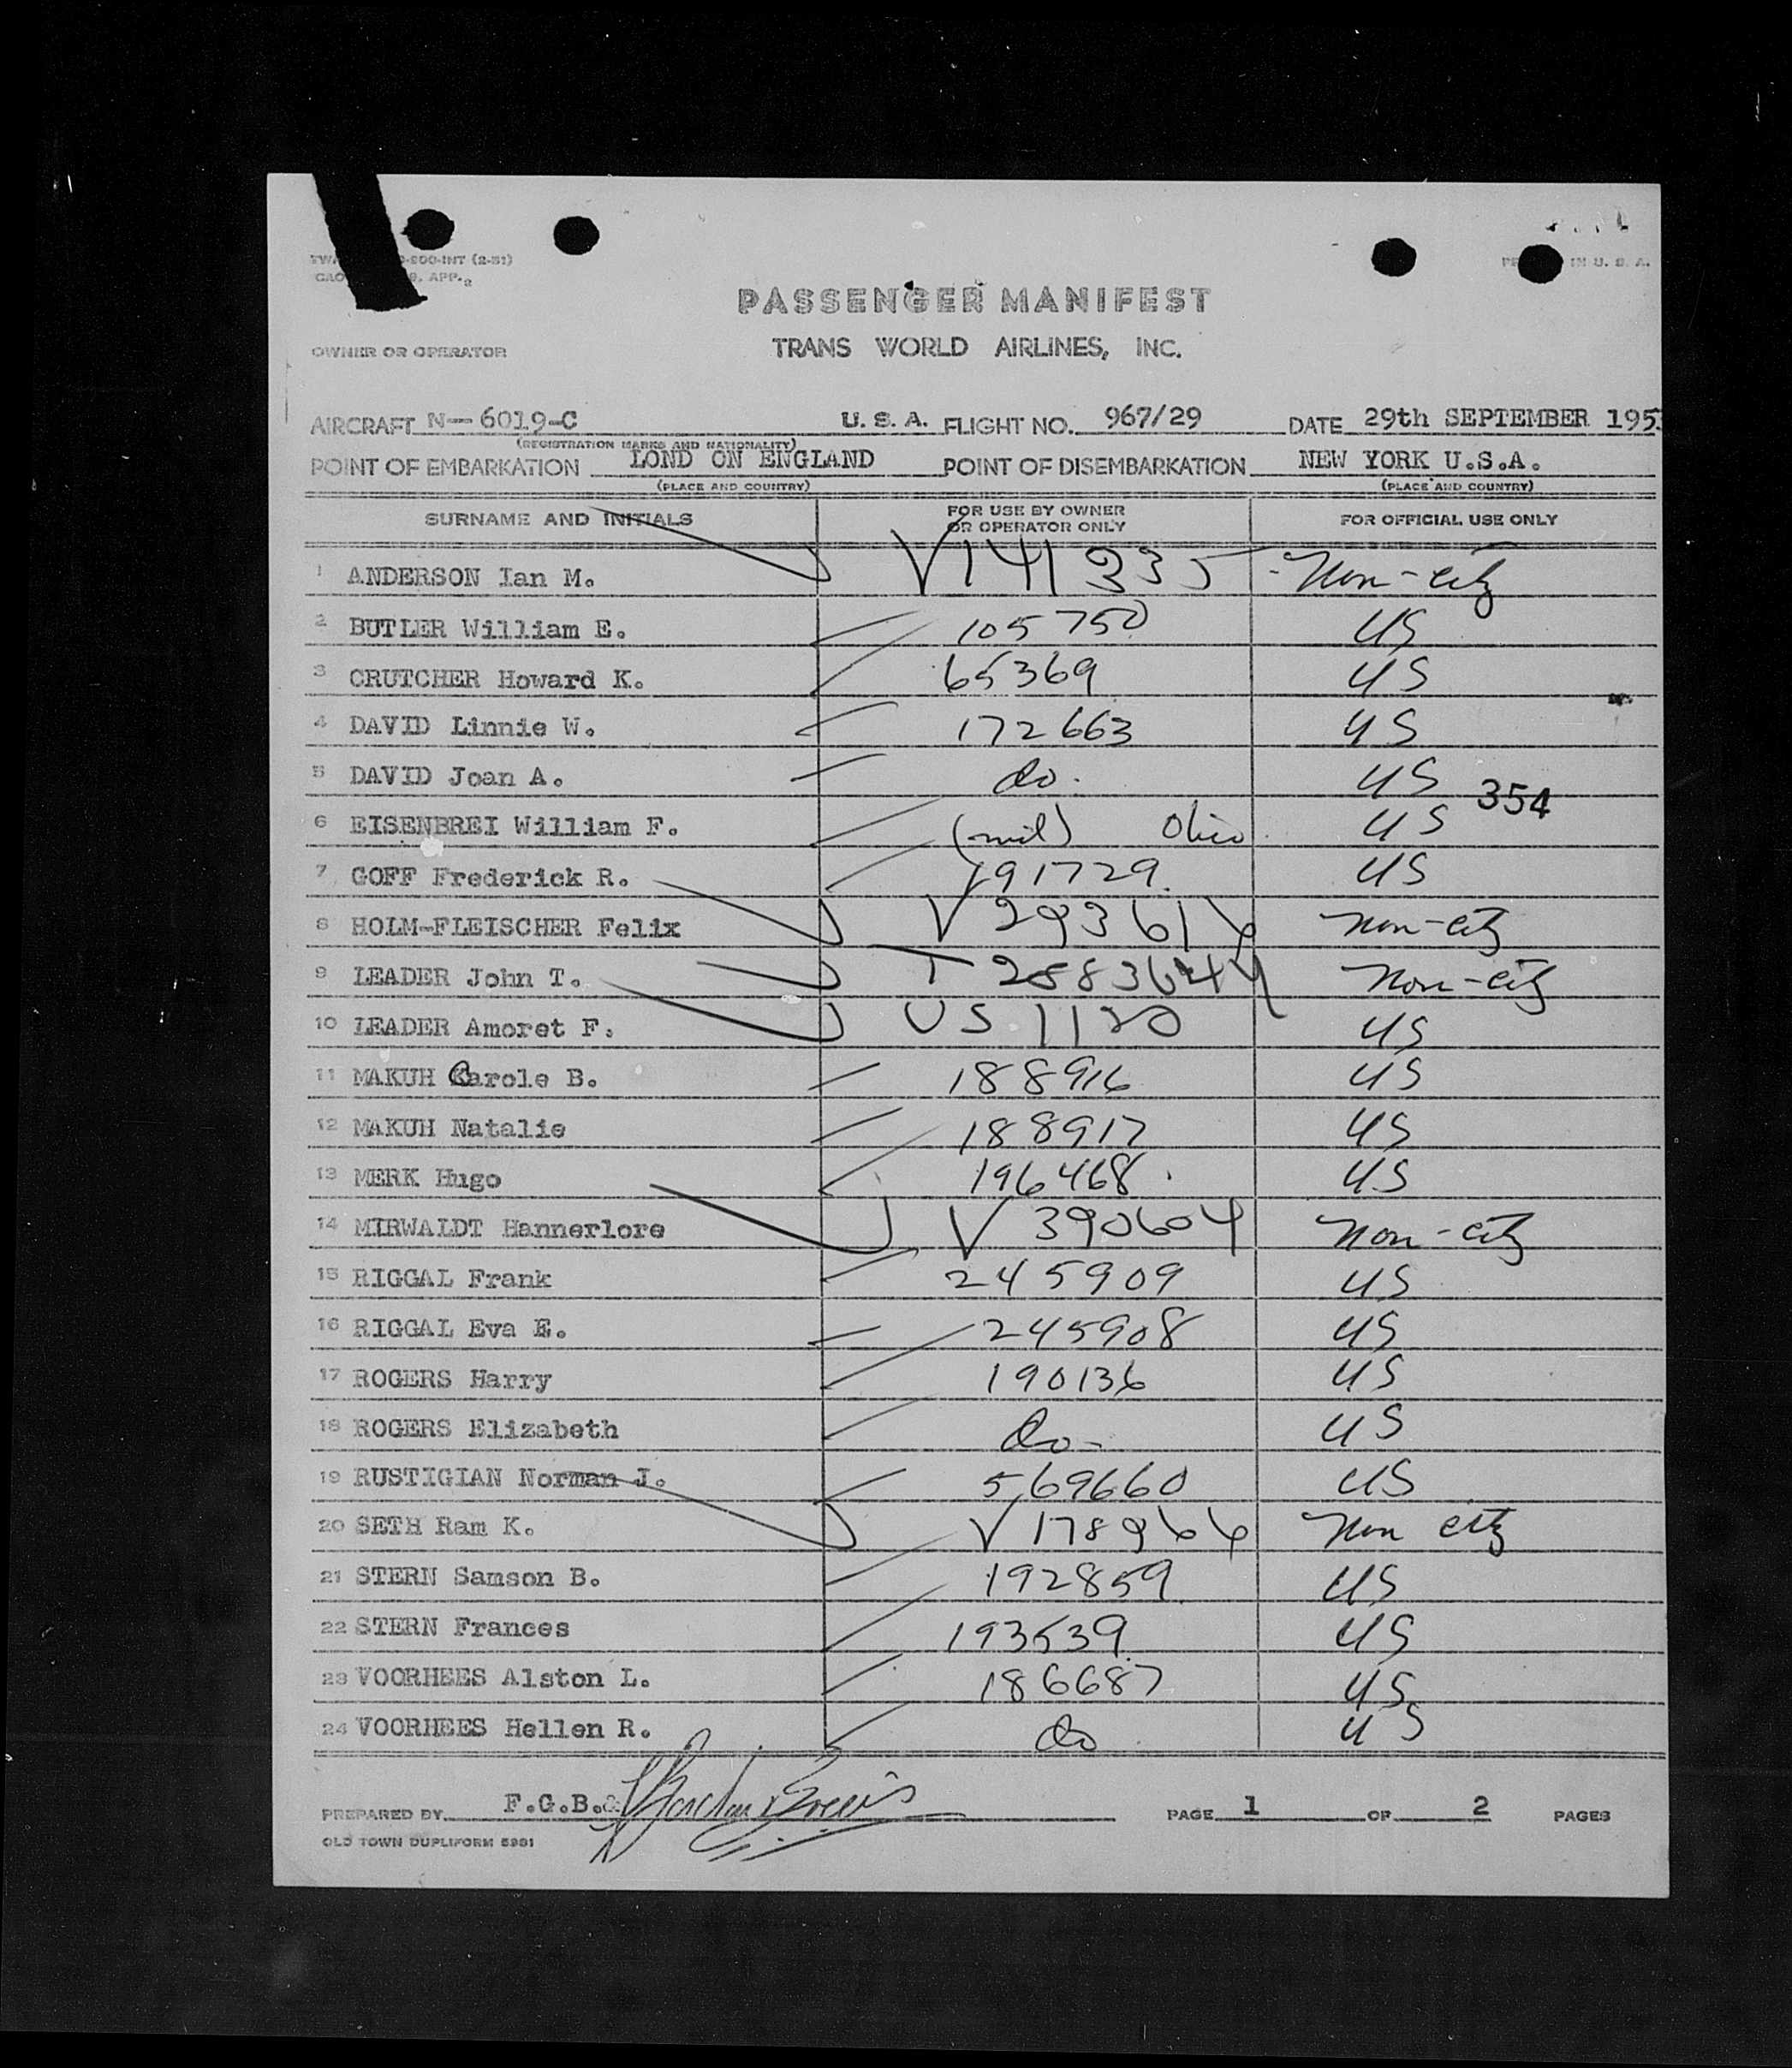 PRINTED IN U. S. A.
PASSENGER MANIFEST
TRANS WORLD AIRLINES, INC.
OWNER OR OPERATOR
AIRCRAFT N-6019-C U. S. A. FLIGHT NO. 967/29 DATE 29th SEPTEMBER 195
(REGISTRATION MARKS AND NATIONALITY)
POINT OF EMBARKATION LOND ON ENGLAND POINT OF DISEMBARKATION NEW YORK U.S.A.
(PLACE AND COUNTRY) (PLACE AND COUNTRY)
SURNAME AND INITIALS FOR USE BY OWNER OR OPERATOR ONLY FOR OFFICIAL USE ONLY
1 ANDERSON Ian M. V141935 Non-citz
2 BUTLER William E. 105750 US
3 CRUTCHER Howard K. 65369 US
4 DAVID Linnie W. 172663 US
5 DAVID Joan A. do. US
354
6 EISENBREI William F. (mil) Ohio US
7 GOFF Frederick R. 191729. US
8 HOLM-FLEISCHER Felix V 293616 Non-citz
9 LEADER John T. T 2883644 Non-citz
10 LEADER Amoret F. US 1120 US
11 MAKUH Carole B. 188916 US
12 MAKUH Natalie 188917 US
13 MERK Hugo 196468 US
14 MIRWALDT Hannerlore V 390604 Non-citz
15 RIGGAL Frank 245909 US
16 RIGGAL Eva E. 245908 US
17 ROGERS Harry 190136 US
18 ROGERS Elizabeth do- US
19 RUSTIGIAN Norman J. 569660 US
20 SETH Ram K. V 178966 Non citz
21 STERN Samson B. 192859 US
22 STERN Frances 193539 US
23 VOORHEES Alston L. 186687 US
24 VOORHEES Hellen R. do US
PREPARED BY F.G.B. PAGE 1 OF 2 PAGES
OLD TOWN DUPLIFORM 5981